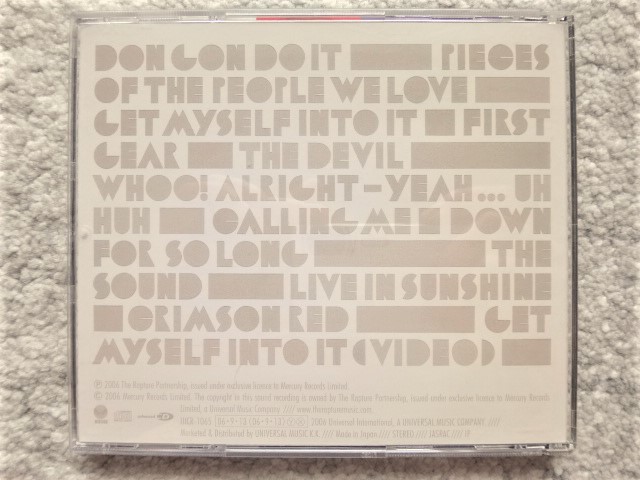 DON GON DO IT PIECES
OF THE PEOPLE WE LOVE
GET MYSELF INTO IT FIRST
GEAR THE DEVIL
WHOO! ALRIGHT-YEAH... UH
HUH CALLING ME DOWN
FOR SO LONG THE
SOUND LIVE IN SUNSHINE
CRIMSON RED GET
MYSELF INTO IT (VIDEO)
℗ 2006 The Rapture Partnership, issued under exclusive licence to Mercury Records Limited.
© 2006 Mercury Records Limited. The copyright in this sound recording is owned by The Rapture Partnership, issued under exclusive licence to Mercury Records
Limited, a Universal Music Company. //// www.therapturemusic.com
UICR-1065 2006 Universal International, A UNIVERSAL MUSIC COMPANY. ////
Marketed & Distributed by UNIVERSAL MUSIC K.K. //// Made in Japan //// STEREO //// JASRAC ////